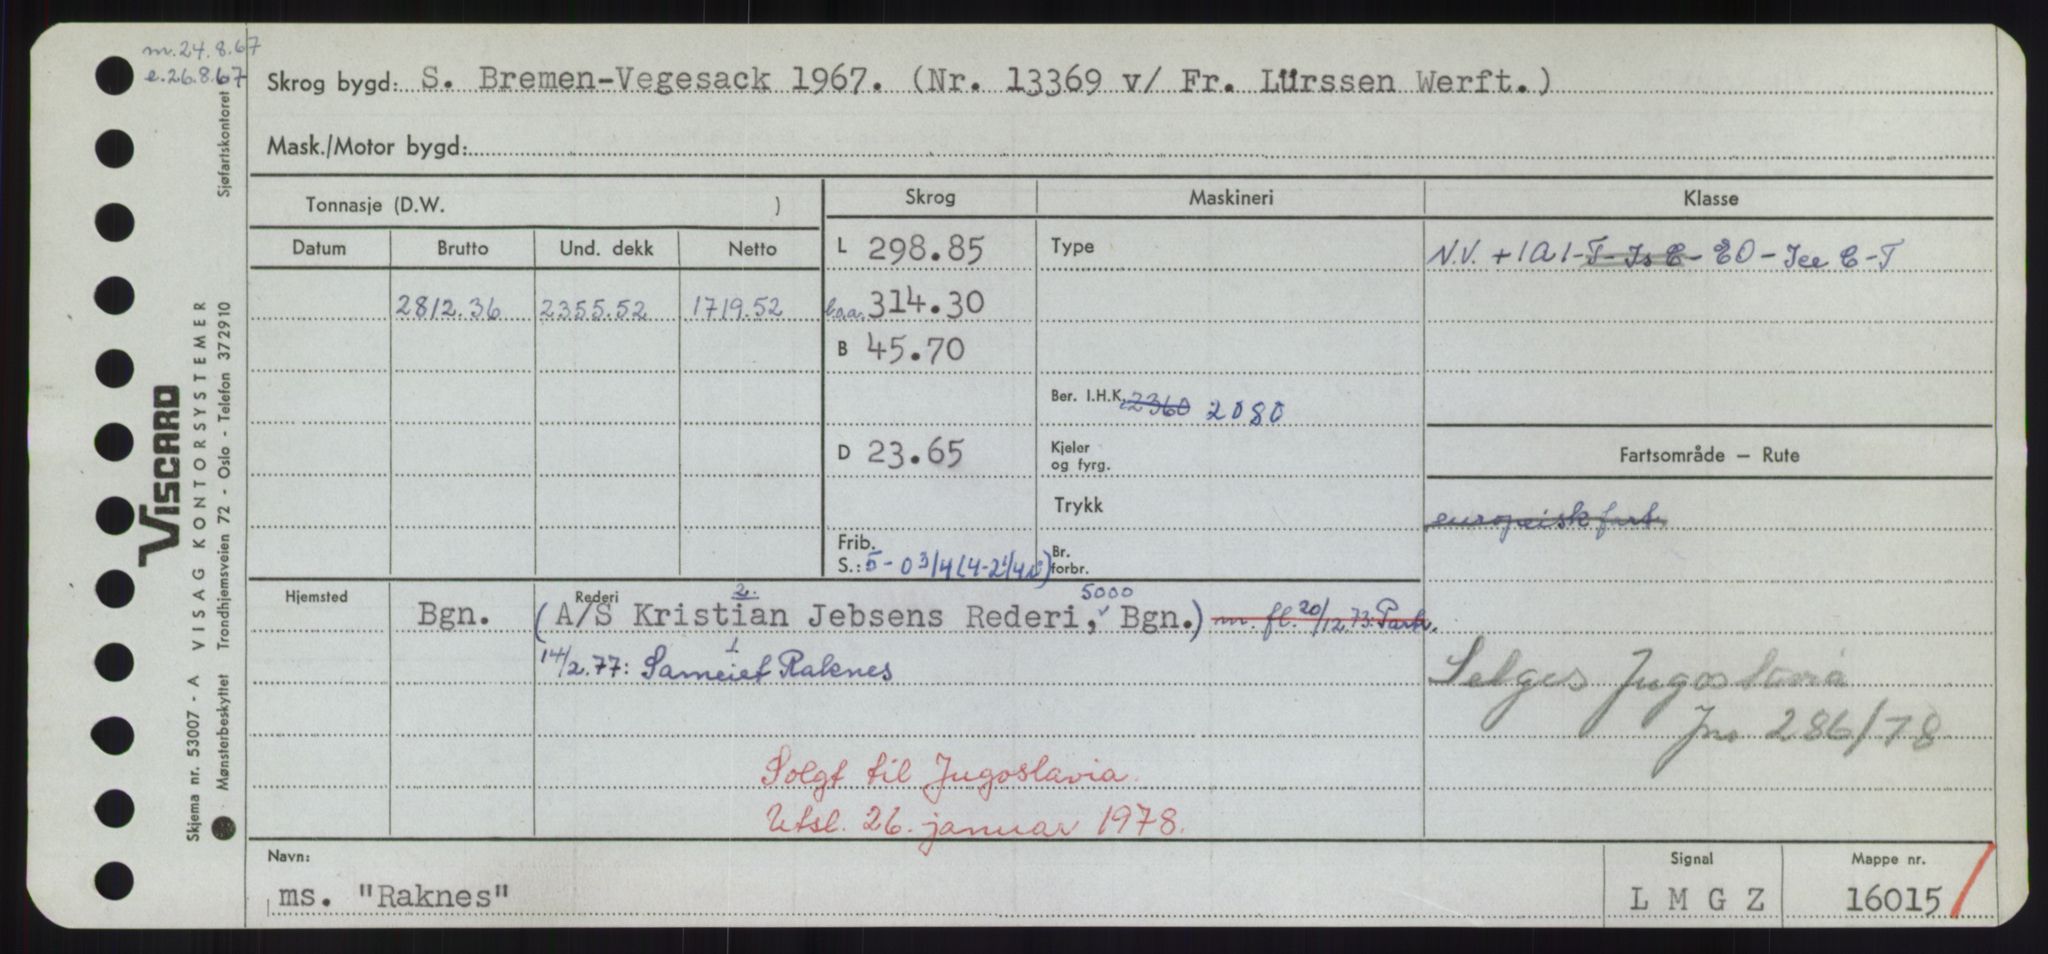 m. 24.8.67
e. 26.8.67
Skrog bygd: S. Bremen-Vegesack 1967. (Nr. 13369 v/ Fr. Lürssen Werft.)
Mask./Motor bygd:
Sjøfartskontoret
Tonnasje (D.W. )
Skrog Maskineri Klasse
Datum Brutto Und. dekk Netto
L 298.85 Type N.V. +1A1-T-Is C-E0-Ice C-T
2812.36 2355.52 1719.52 l.o.a. 314.30
B 45.70
Ber. I.H.K. 2360 2080
D 23.65 Kjeler og fyrg.
Fartsområde – Rute
Trykk
europeisk fart
Frib. S.: 5-0 3/4 (4-2 1/4) Br. forbr.
Hjemsted Rederi 2. 5000
Bgn. (A/S Kristian Jebsens Rederi, Bgn.) m. fl. 20/12.73. Partr.
1
14/2.77: Sameiet Raknes
Selges Jugoslavia
Jnr 286/78
Solgt til Jugoslavia.
Utsl. 26. januar 1978.
Navn: Signal Mappe nr.
ms. "Raknes" L M G Z 16015
VISCARD
VISAG KONTORSYSTEMER
Skjema nr. 53007 - A
Mønsterbeskyttet Trondhjemsveien 72 - Oslo - Telefon 372910